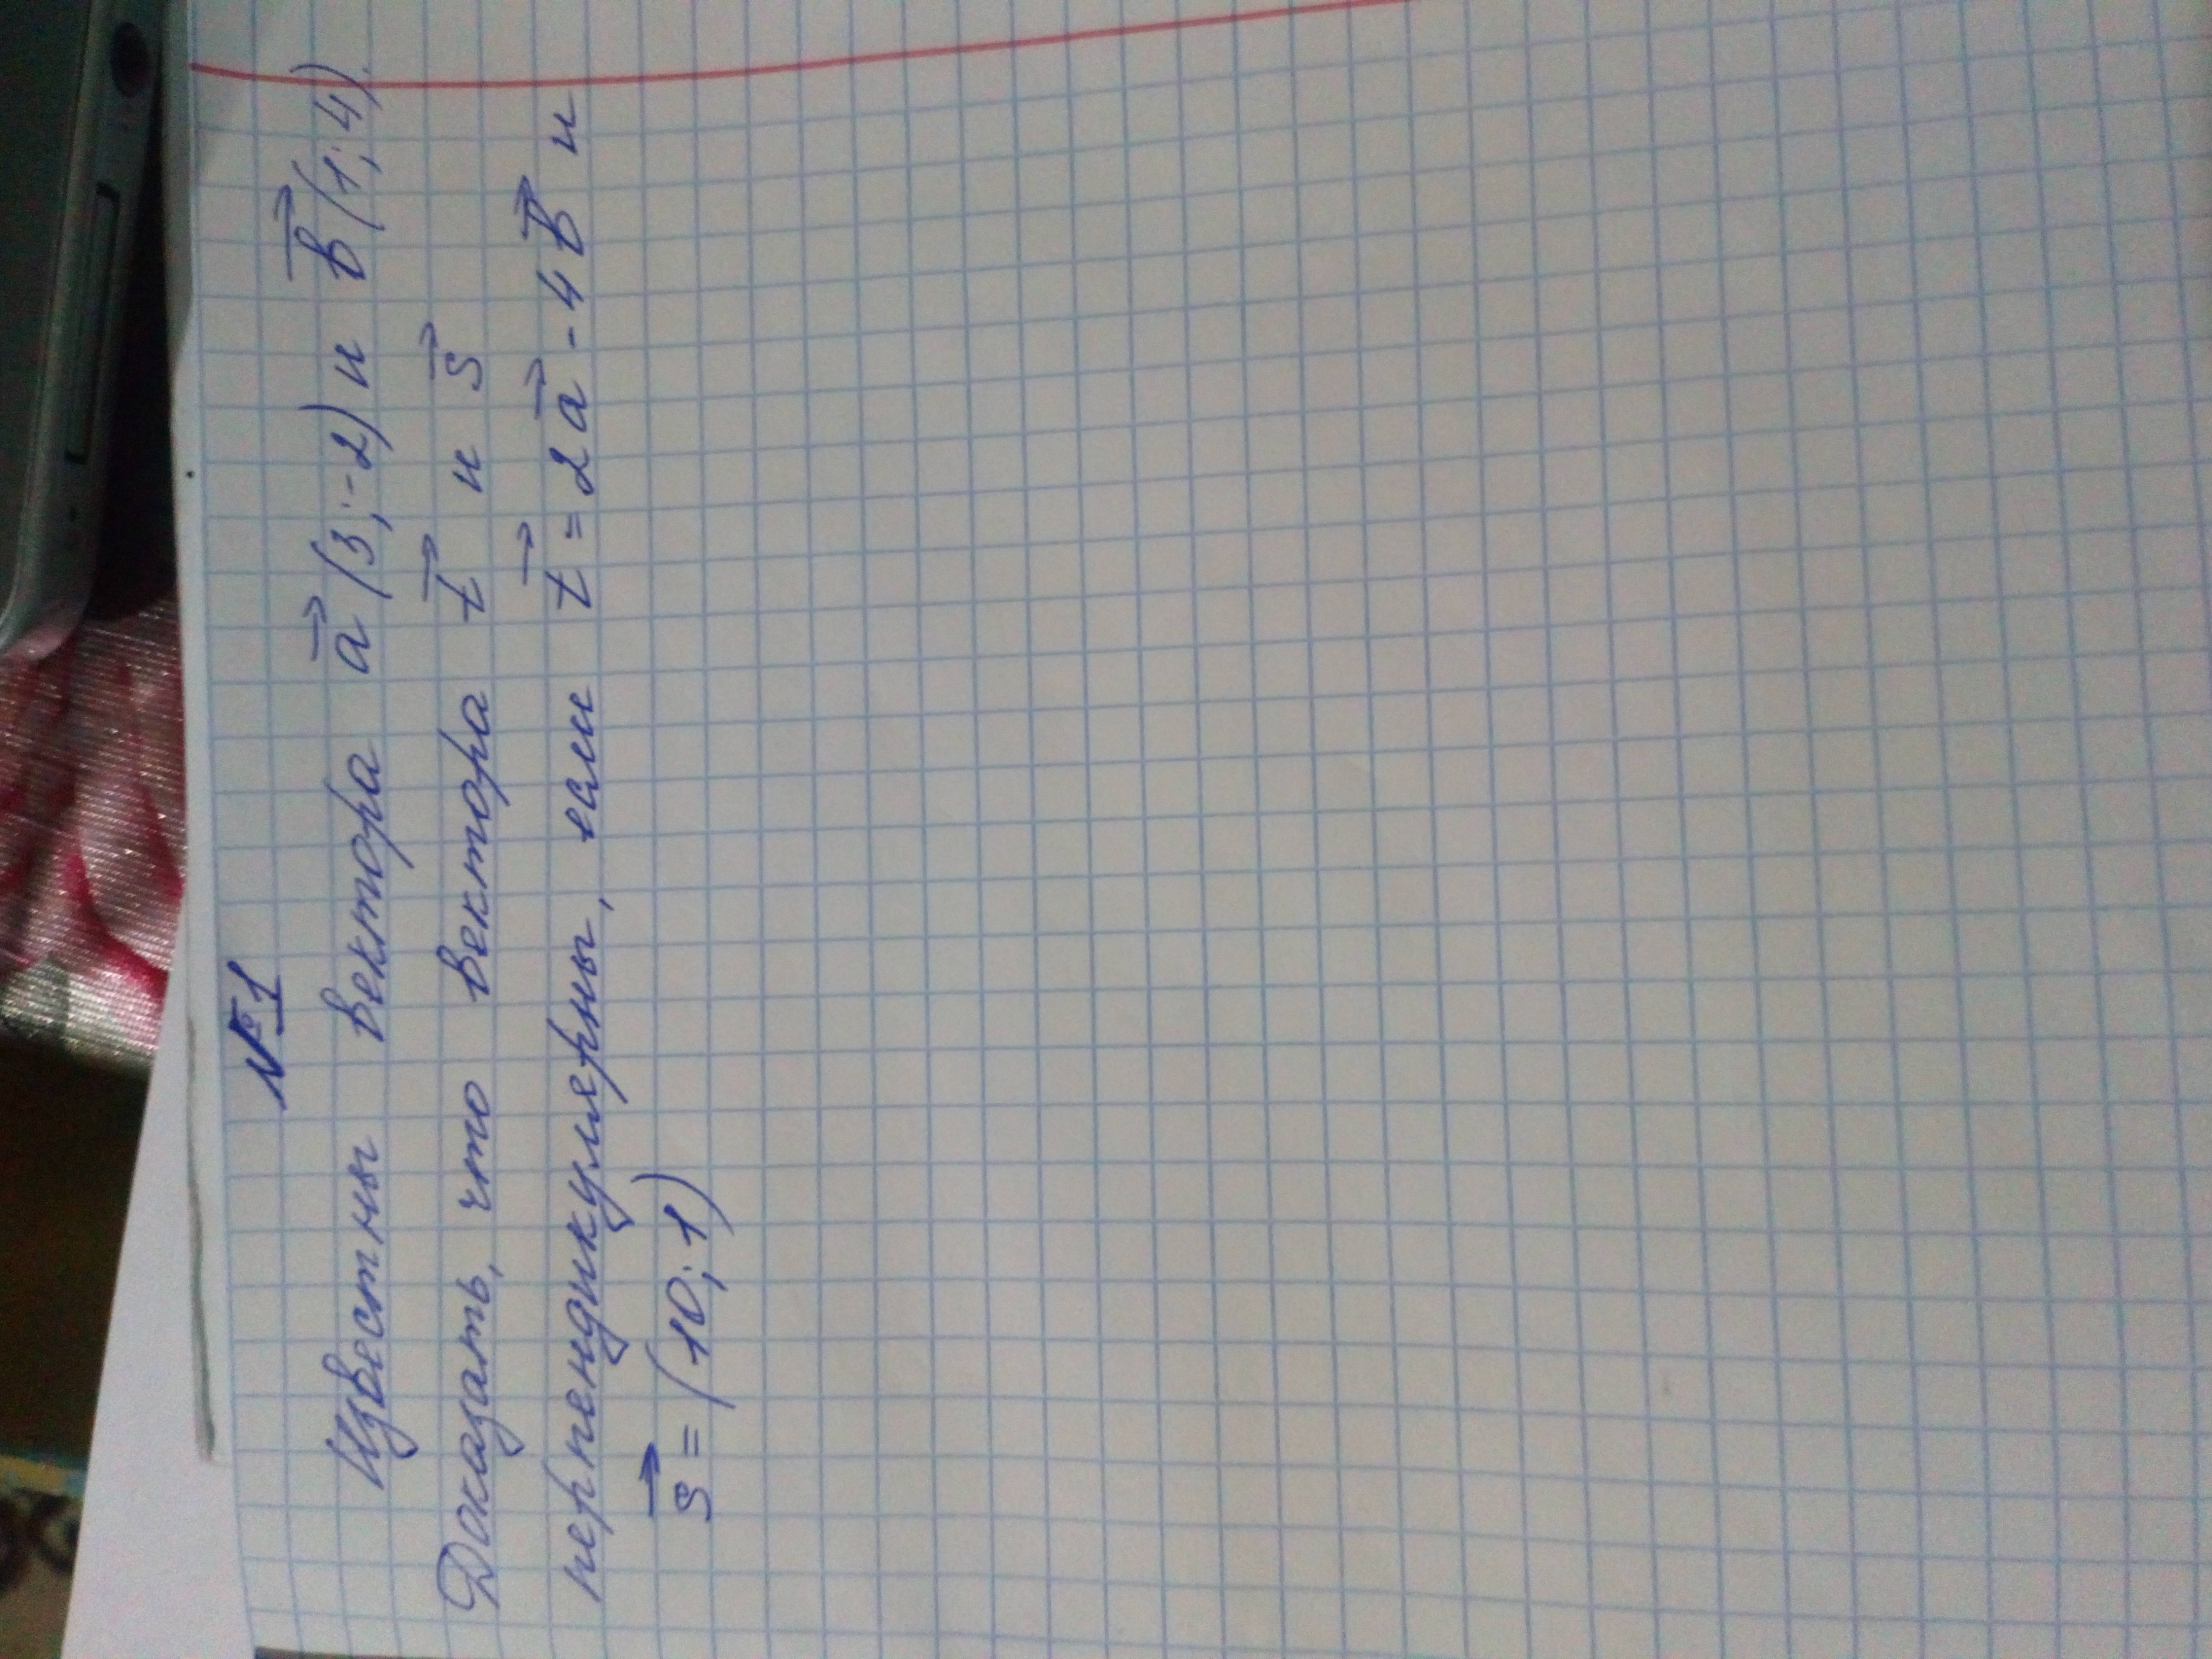 №1
Известны вектора a⃗ (3; -2) и b⃗ (1; 4).
Доказать, что вектора t⃗ и s⃗
перпендикулярны, если t⃗ = 2a⃗ - 4b⃗ и
s⃗ = (10; 1)